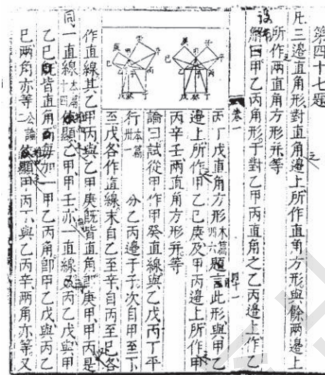 第四十七題
凡三邊直角形對直角邊上所作直角方形與餘兩邊上
所作兩直角方形并等
解曰甲乙丙角形于對乙甲丙直角之乙丙邊上作乙
丙丁戊直角方形 題言此形與甲乙
邊上所作甲乙己庚及甲丙邊上所作甲
丙辛壬兩直角方形并等
論曰試從甲作甲癸直線與乙戊丙丁平
行 分乙丙邊于子次自甲至丁
至戊各作直線末自乙至辛自丙至己各
作直線其乙甲丙與乙甲庚既皆直角 庚甲甲丙是
同一直線 乙甲甲壬亦一直線 丙乙戊與甲
乙己既皆直角 每加一甲乙丙角即甲乙戊與丙乙
己兩角亦等 甲丙丁與乙丙辛兩角亦等又